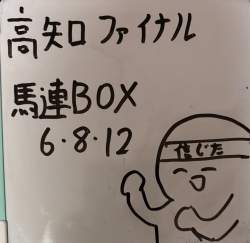 高知口ファイナル
馬連BOX
6・8・12
信じた